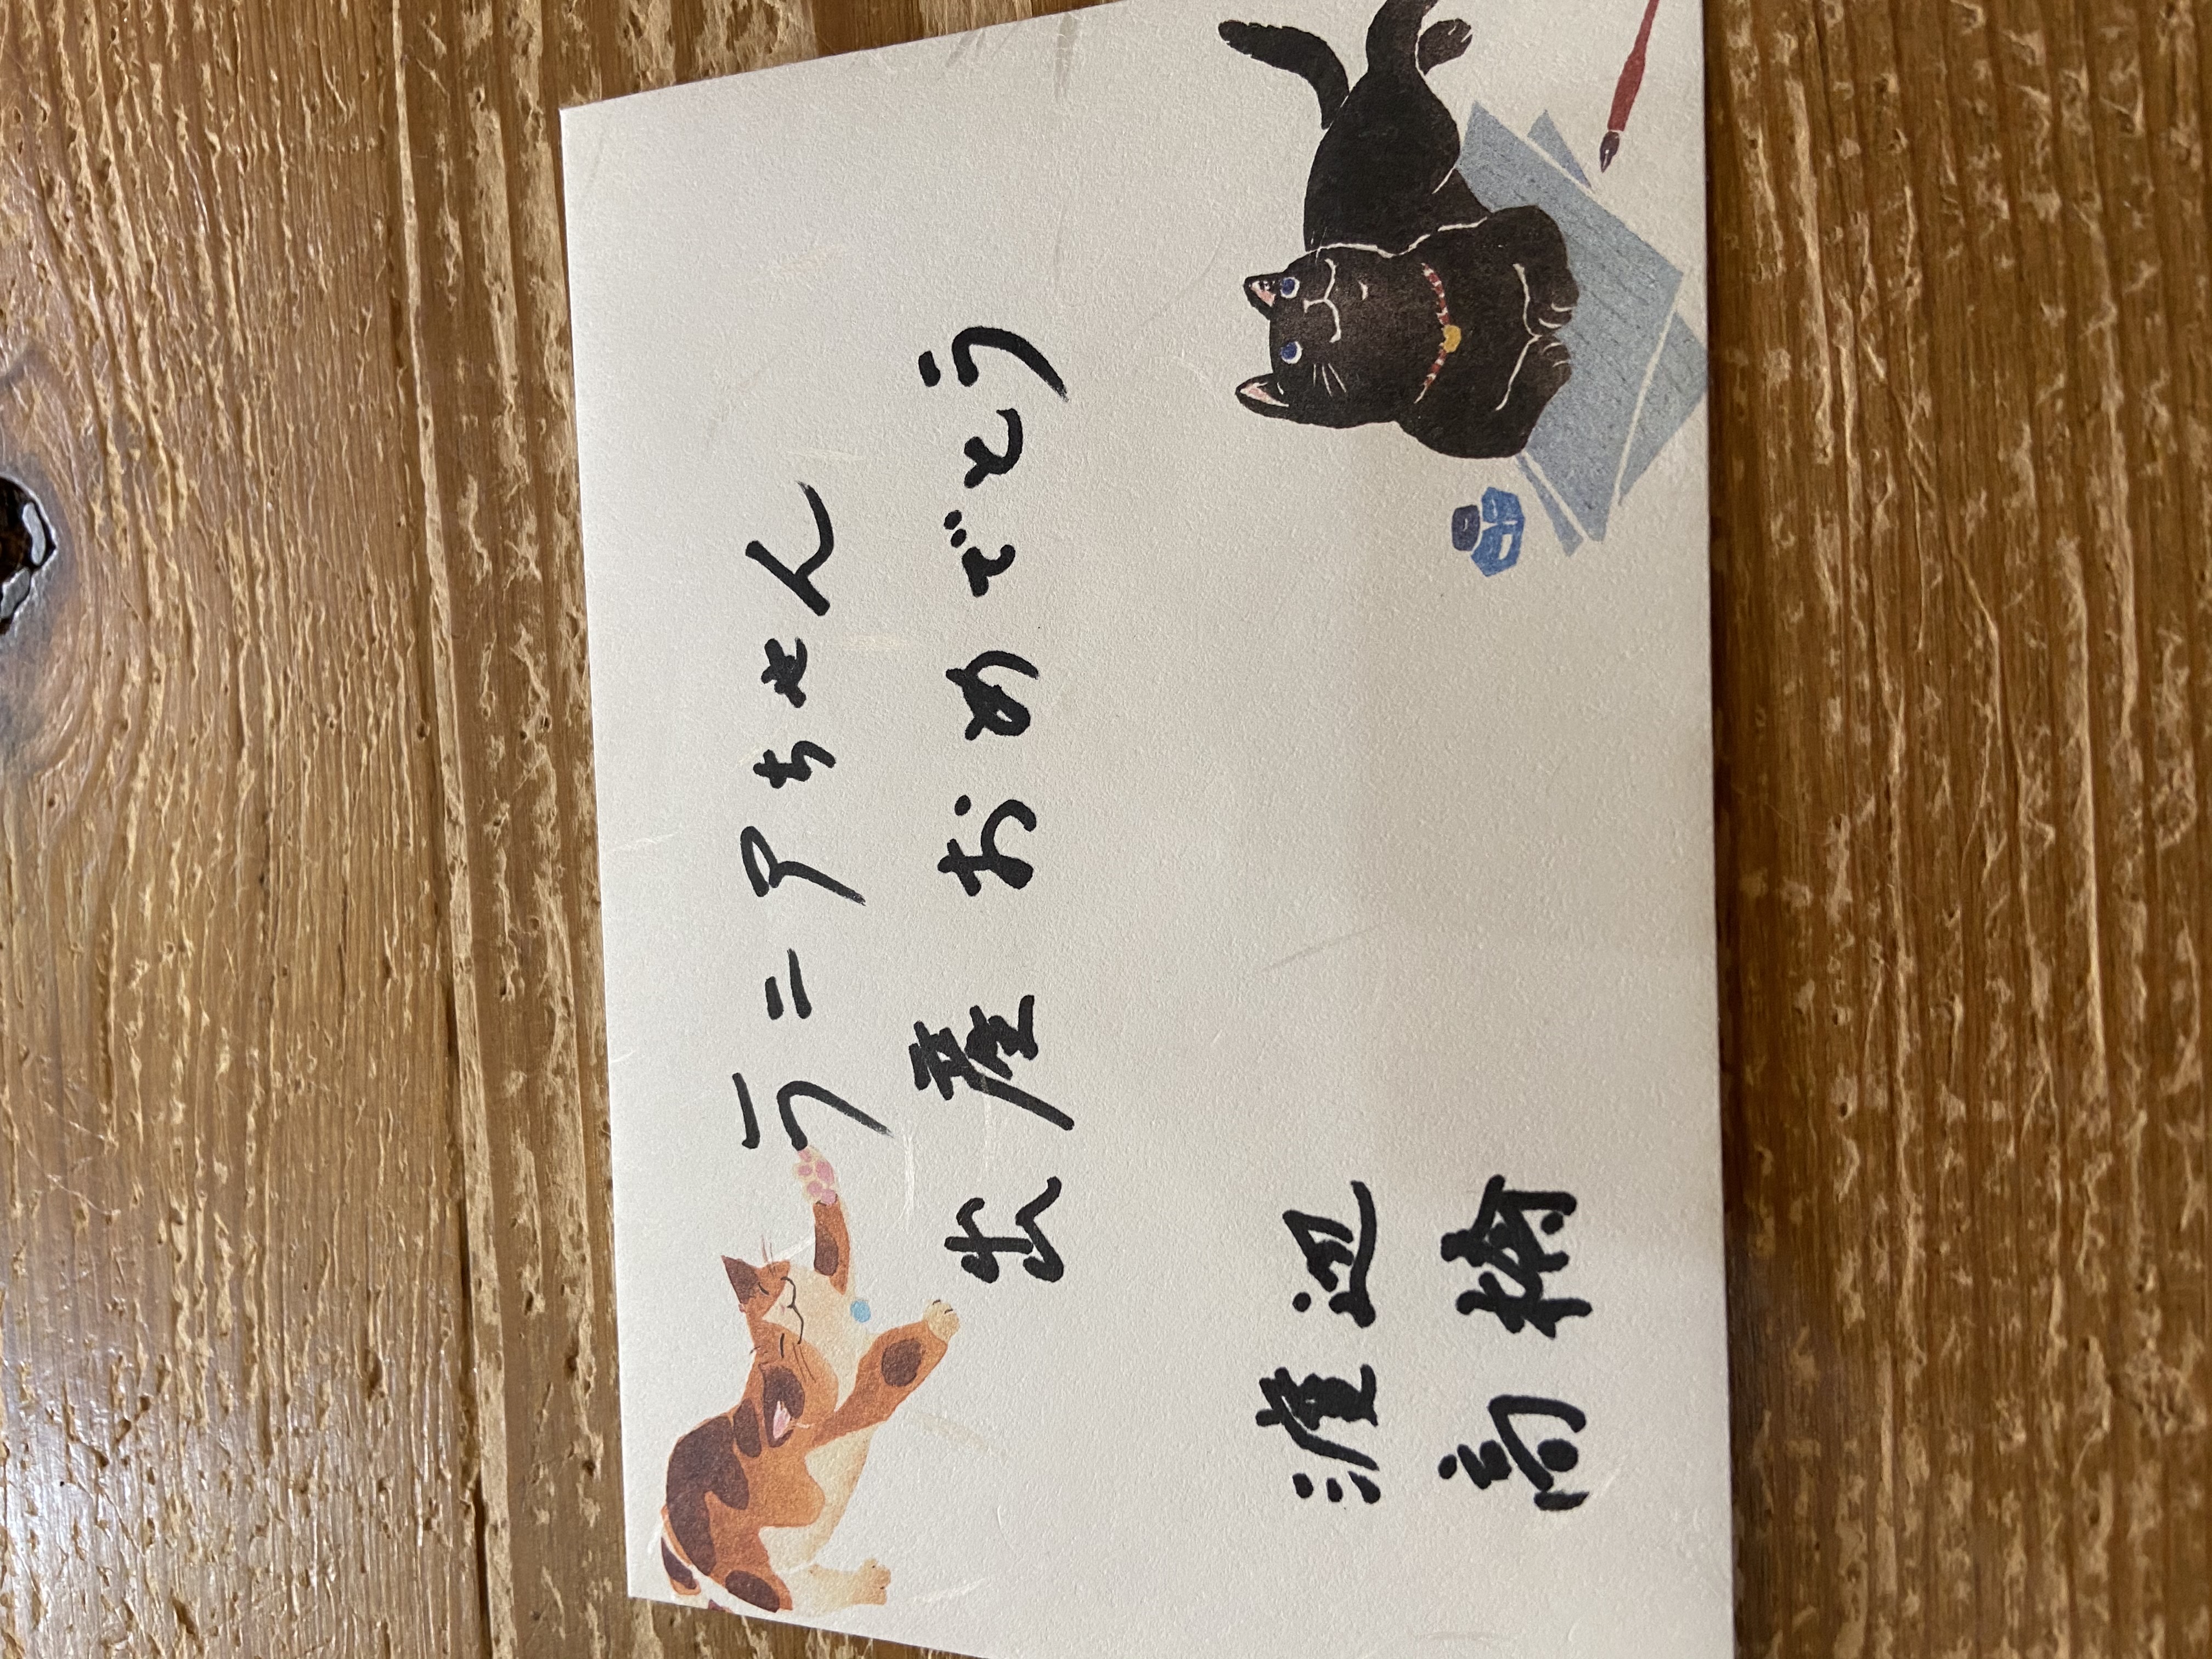 ラニアちゃん
出産おめでとう
渡辺
高橋